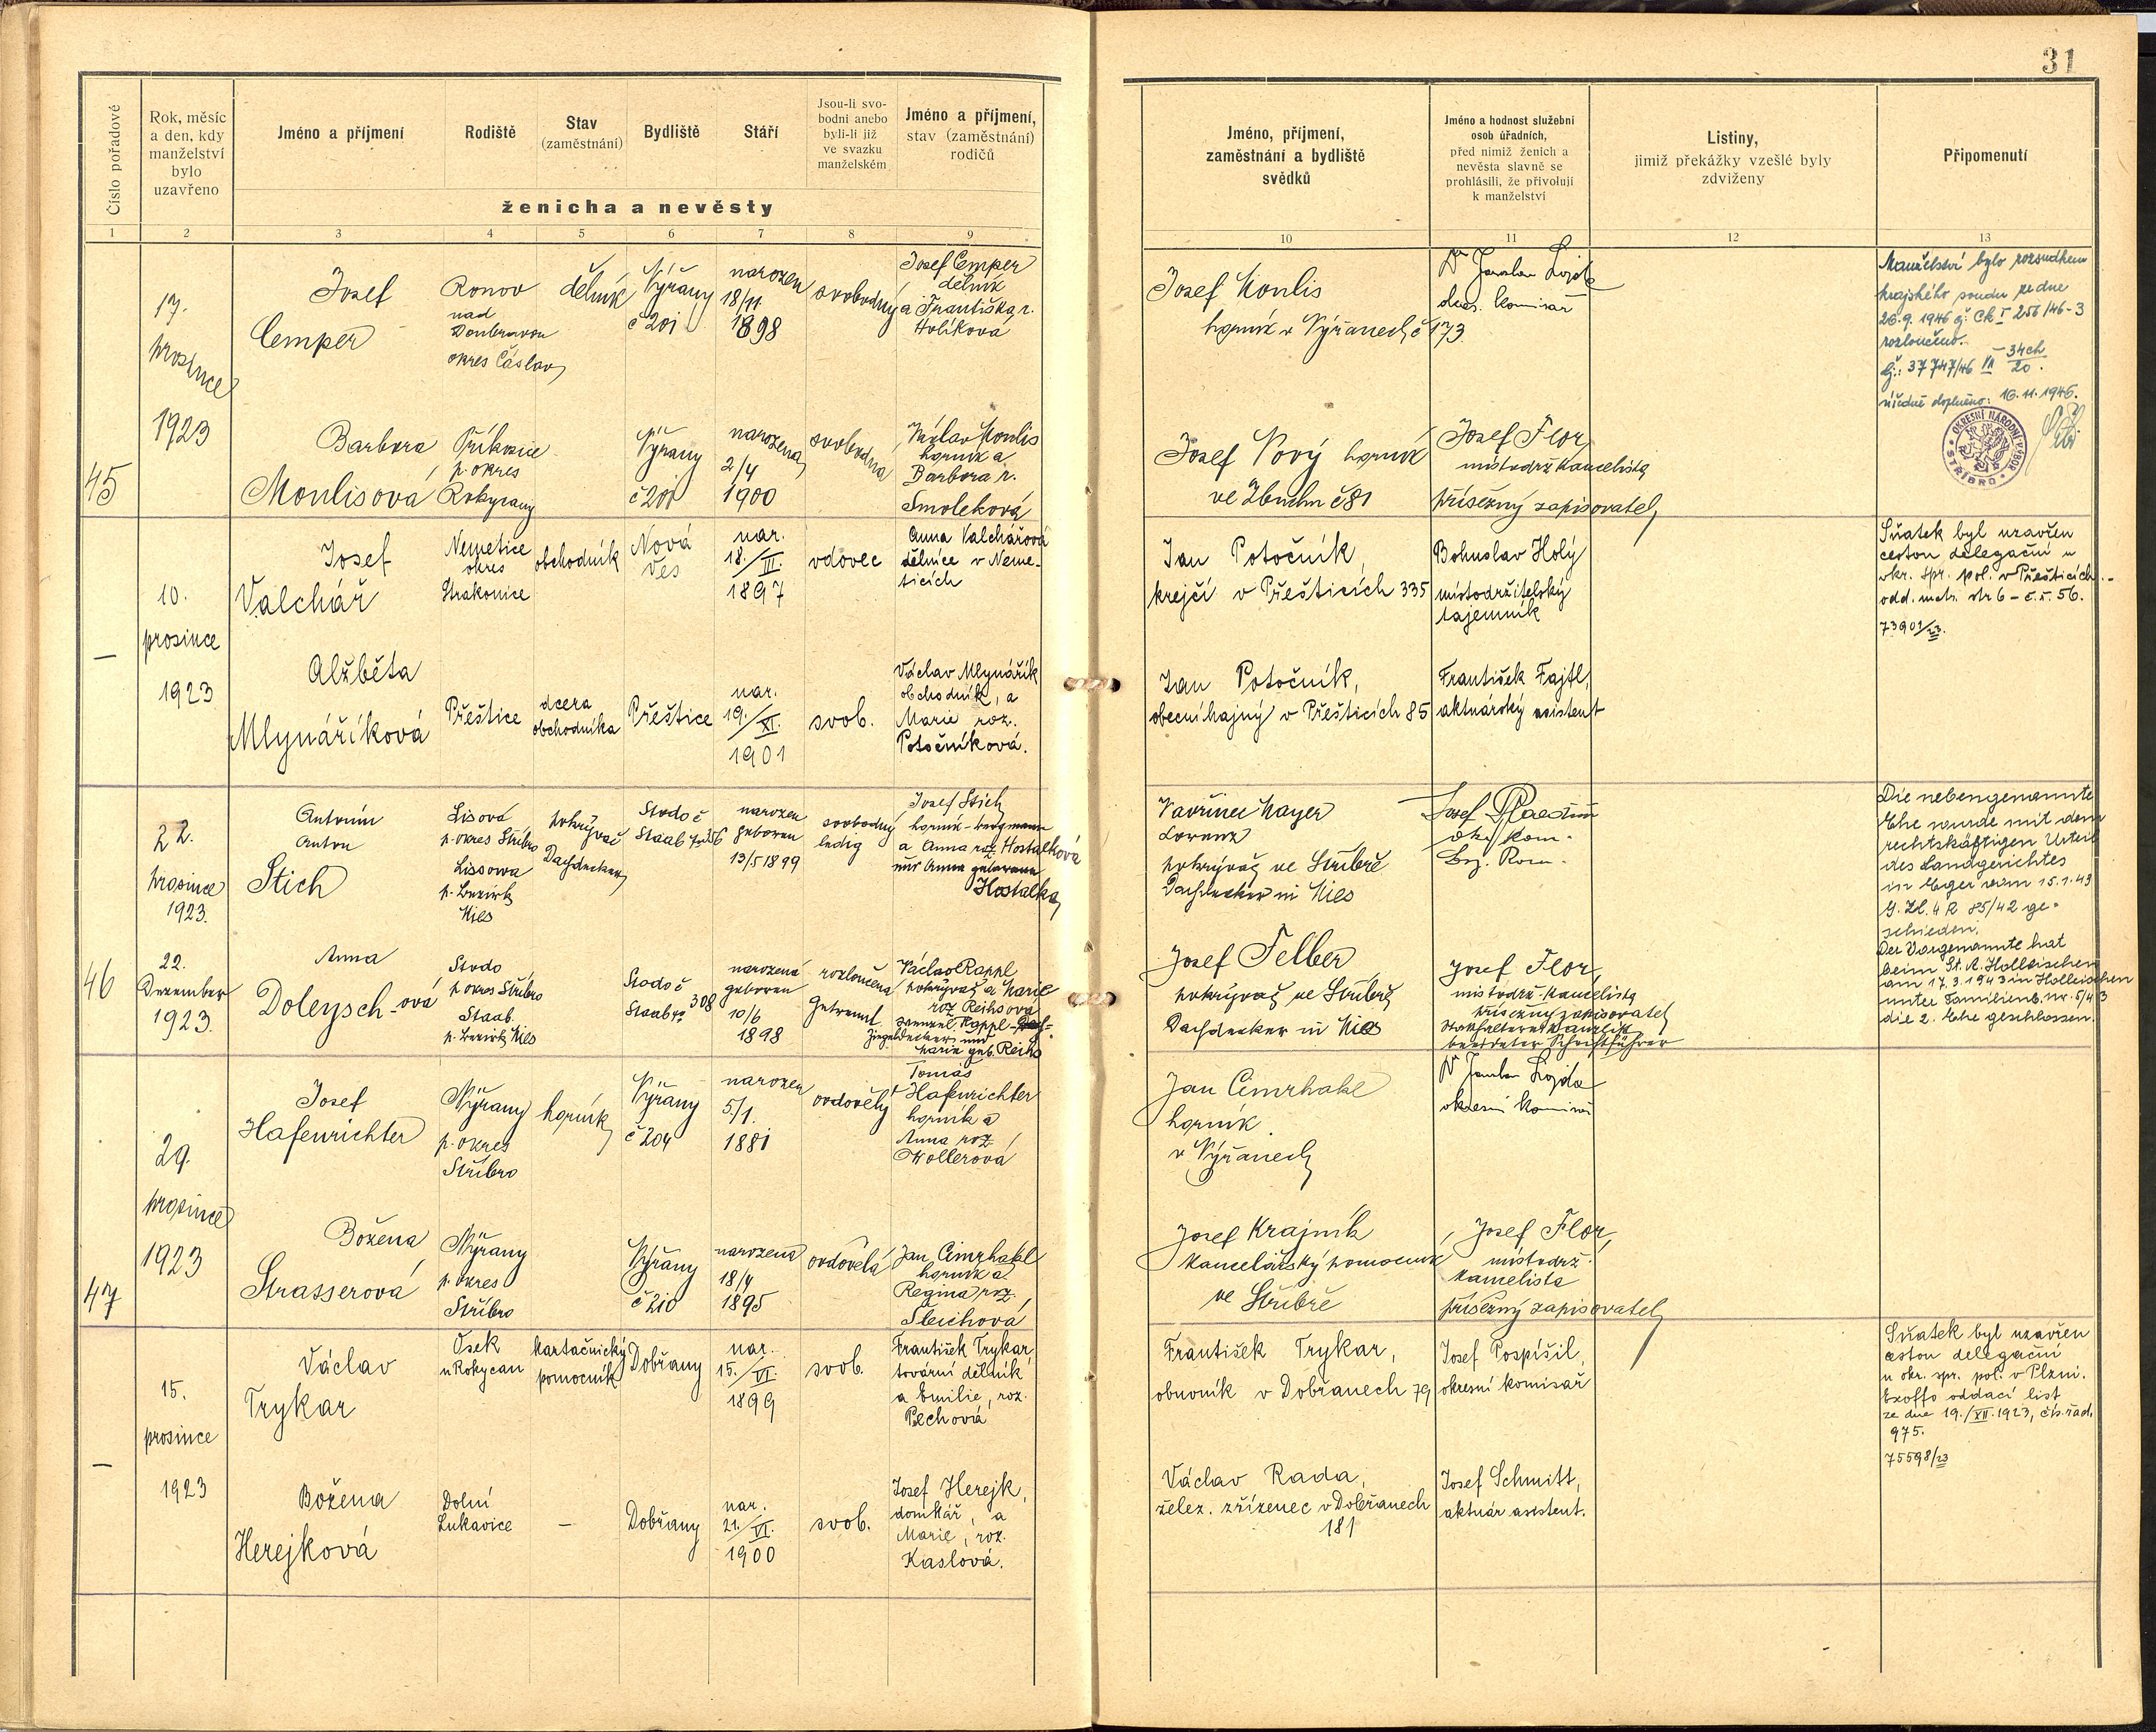 31
Číslo pořadové
Rok, měsíc
a den, kdy
manželství
bylo
uzavřeno
Jméno a příjmení
Rodiště
Stav
(zaměstnání)
Bydliště
Stáří
Jsou-li svo-
bodni anebo
byli-li již
ve svazku
manželském
Jméno a příjmení,
stav (zaměstnání)
rodičů
ženicha a nevěsty
Jméno, příjmení,
zaměstnání a bydliště
svědků
Jméno a hodnost služební
osob úřadních,
před nimiž ženich a
nevěsta slavně se
prohlásili, že přivolují
k manželství
Listiny,
jimiž překážky vzešlé byly
zdviženy
Připomenutí
1 2 3 4 5 6 7 8 9 10 11 12 13
45
17.
prosince
1923
Josef
Cemper
Ronov
nad
Doubravou
okres Čáslav
dělník
Nýřany
č 201
narozen
18/11
1898
svobodný
Josef Cemper
dělník
a Františka r.
Holíková
Josef Moulis
horník v Nýřanech č 173
Dr Jaroslav Lojda
okres. komisař
Manželství bylo rozsudkem
krajského soudu ze dne
26.9.1946 čj: Ck I 256/46-3
rozloučeno.
Čj.: 37747/46 VII - 34ch/20.
úředně doplněno: 16.11.1946.
OKRESNÍ NÁRODNÍ VÝBOR
STŘÍBRO
Barbora
Moulisová
Příkosice
p. okres
Rokycany
Nýřany
č 201
narozena
2/4
1900
svobodna
Václav Moulis
horník a
Barbora r.
Smoleková
Josef Nový horník
ve Zbuchu č 81
Josef Flor
místodrž kancelista
přísežný zapisovatel
–
10.
prosince
1923
Josef
Valchář
Nemetice
okres
Strakonice
obchodník
Nová
Ves
nar.
18./III.
1897
vdovec
Anna Valchářová
dělnice v Neme-
ticích
Jan Potočník,
krejčí v Přešticích 335
Bohuslav Holý
místodržitelský
tajemník
Sňatek byl uzavřen
cestou delegační u
okr. spr. pol. v Přešticích.-
odd. matr. str 6 - č.ř. 56.
73901/23.
Alžběta
Mlynáříková
Přeštice
dcera
obchodníka
Přeštice
nar.
19./XI.
1901
svob.
Václav Mlynářík
obchodník, a
Marie roz.
Potočníková.
Jan Potočník,
obecní hajný v Přešticích 85
František Fajtl,
aktuárský asistent
46
22.
prosince
1923.
22.
Dezember
1923.
Antonín
Anton
Stich
Lisová
p. okres Stříbro
Lissowa
p. Bezirk
Mies
pokrývač
Dachdecker
Stod č
Staab
narozen
geboren
13/5 1899
svobodný
ledig
Josef Stich
horník-bergmann
a Anna roz. Hostalková
und Anna geborene
Hostalka
Vavřinec Mayer
Lorenz
pokrývač ve Stříbře
Dachdecker in Mies
Josef
okr. kom.
Bez. Kom.
Die nebengenannte
Ehe wurde mit dem
rechtskräftigen Urteil
des Landgerichtes
in Eger vom 15.1.43
G. Zl. 4 R 85/42 ge-
schieden.
Der Vorgenannte hat
beim St. A. Holleischen
am 17.3.1943 in Holleischen
unter Familienb. nr. 5/43
die 2. Ehe geschlossen.
Anna
Doleysch-ová
Stod
p okres Stříbro
Staab.
p. Bezirk Mies
Stod č
Staab No 308
narozená
geboren
10/6
1898
rozloučena
getrennt
Václav Rappl
pokrývač a Marie
roz Reihsová
Wenzel Rappl
Ziegeldecker und
Marie geb. Reihs
Josef Felber
pokrývač ve Stříbře
Dachdecker in Mies
Josef Flor,
místodrž. kancelista
přísežný zapisovatel
Statthalterei Kanzlist
beeideter Schriftführer
47
29.
prosince
1923
Josef
Hafenrichter
Nýřany
p. okres
Stříbro
horník
Nýřany
č 204
narozen
5/1.
1881
ovdovělý
Tomáš
Hafenrichter
horník a
Anna roz.
Wollerová
Jan Cimrhakl
horník
v Nýřanech
Dr Jaroslav Lojda
okresní komisař
Božena
Strasserová
Nýřany
p. okres
Stříbro
Nýřany
č 210
narozena
18/4
1895
ovdovělá
Jan Cimrhakl
horník a
Regina roz.
Šleichová
Josef Krajník
kancelářský pomocník
ve Stříbře
Josef Flor,
místodrž.
kancelista
přísežný zapisovatel
–
15.
prosince
1923
Václav
Trykar
Osek
u Rokycan
kartáčnický
pomocník
Dobřany
nar.
15./VI.
1899
svob.
František Trykar
tovární dělník
a Emilie, roz.
Pechová
František Trykar,
obuvník v Dobřanech 79
Josef Pospíšil,
okresní komisař
Sňatek byl uzavřen
cestou delegační
u okr. spr. pol. v Plzni.
Exoffo oddací list
ze dne 19./XII.1923, čís. řad.
975.
75598/23
Božena
Herejková
Dolní
Lukavice
–
Dobřany
nar.
21./VI.
1900
svob.
Josef Herejk,
domkář, a
Marie, roz.
Kaslová.
Václav Rada,
želez. zřízenec v Dobřanech
181
Josef Schmitt,
aktuár asistent.